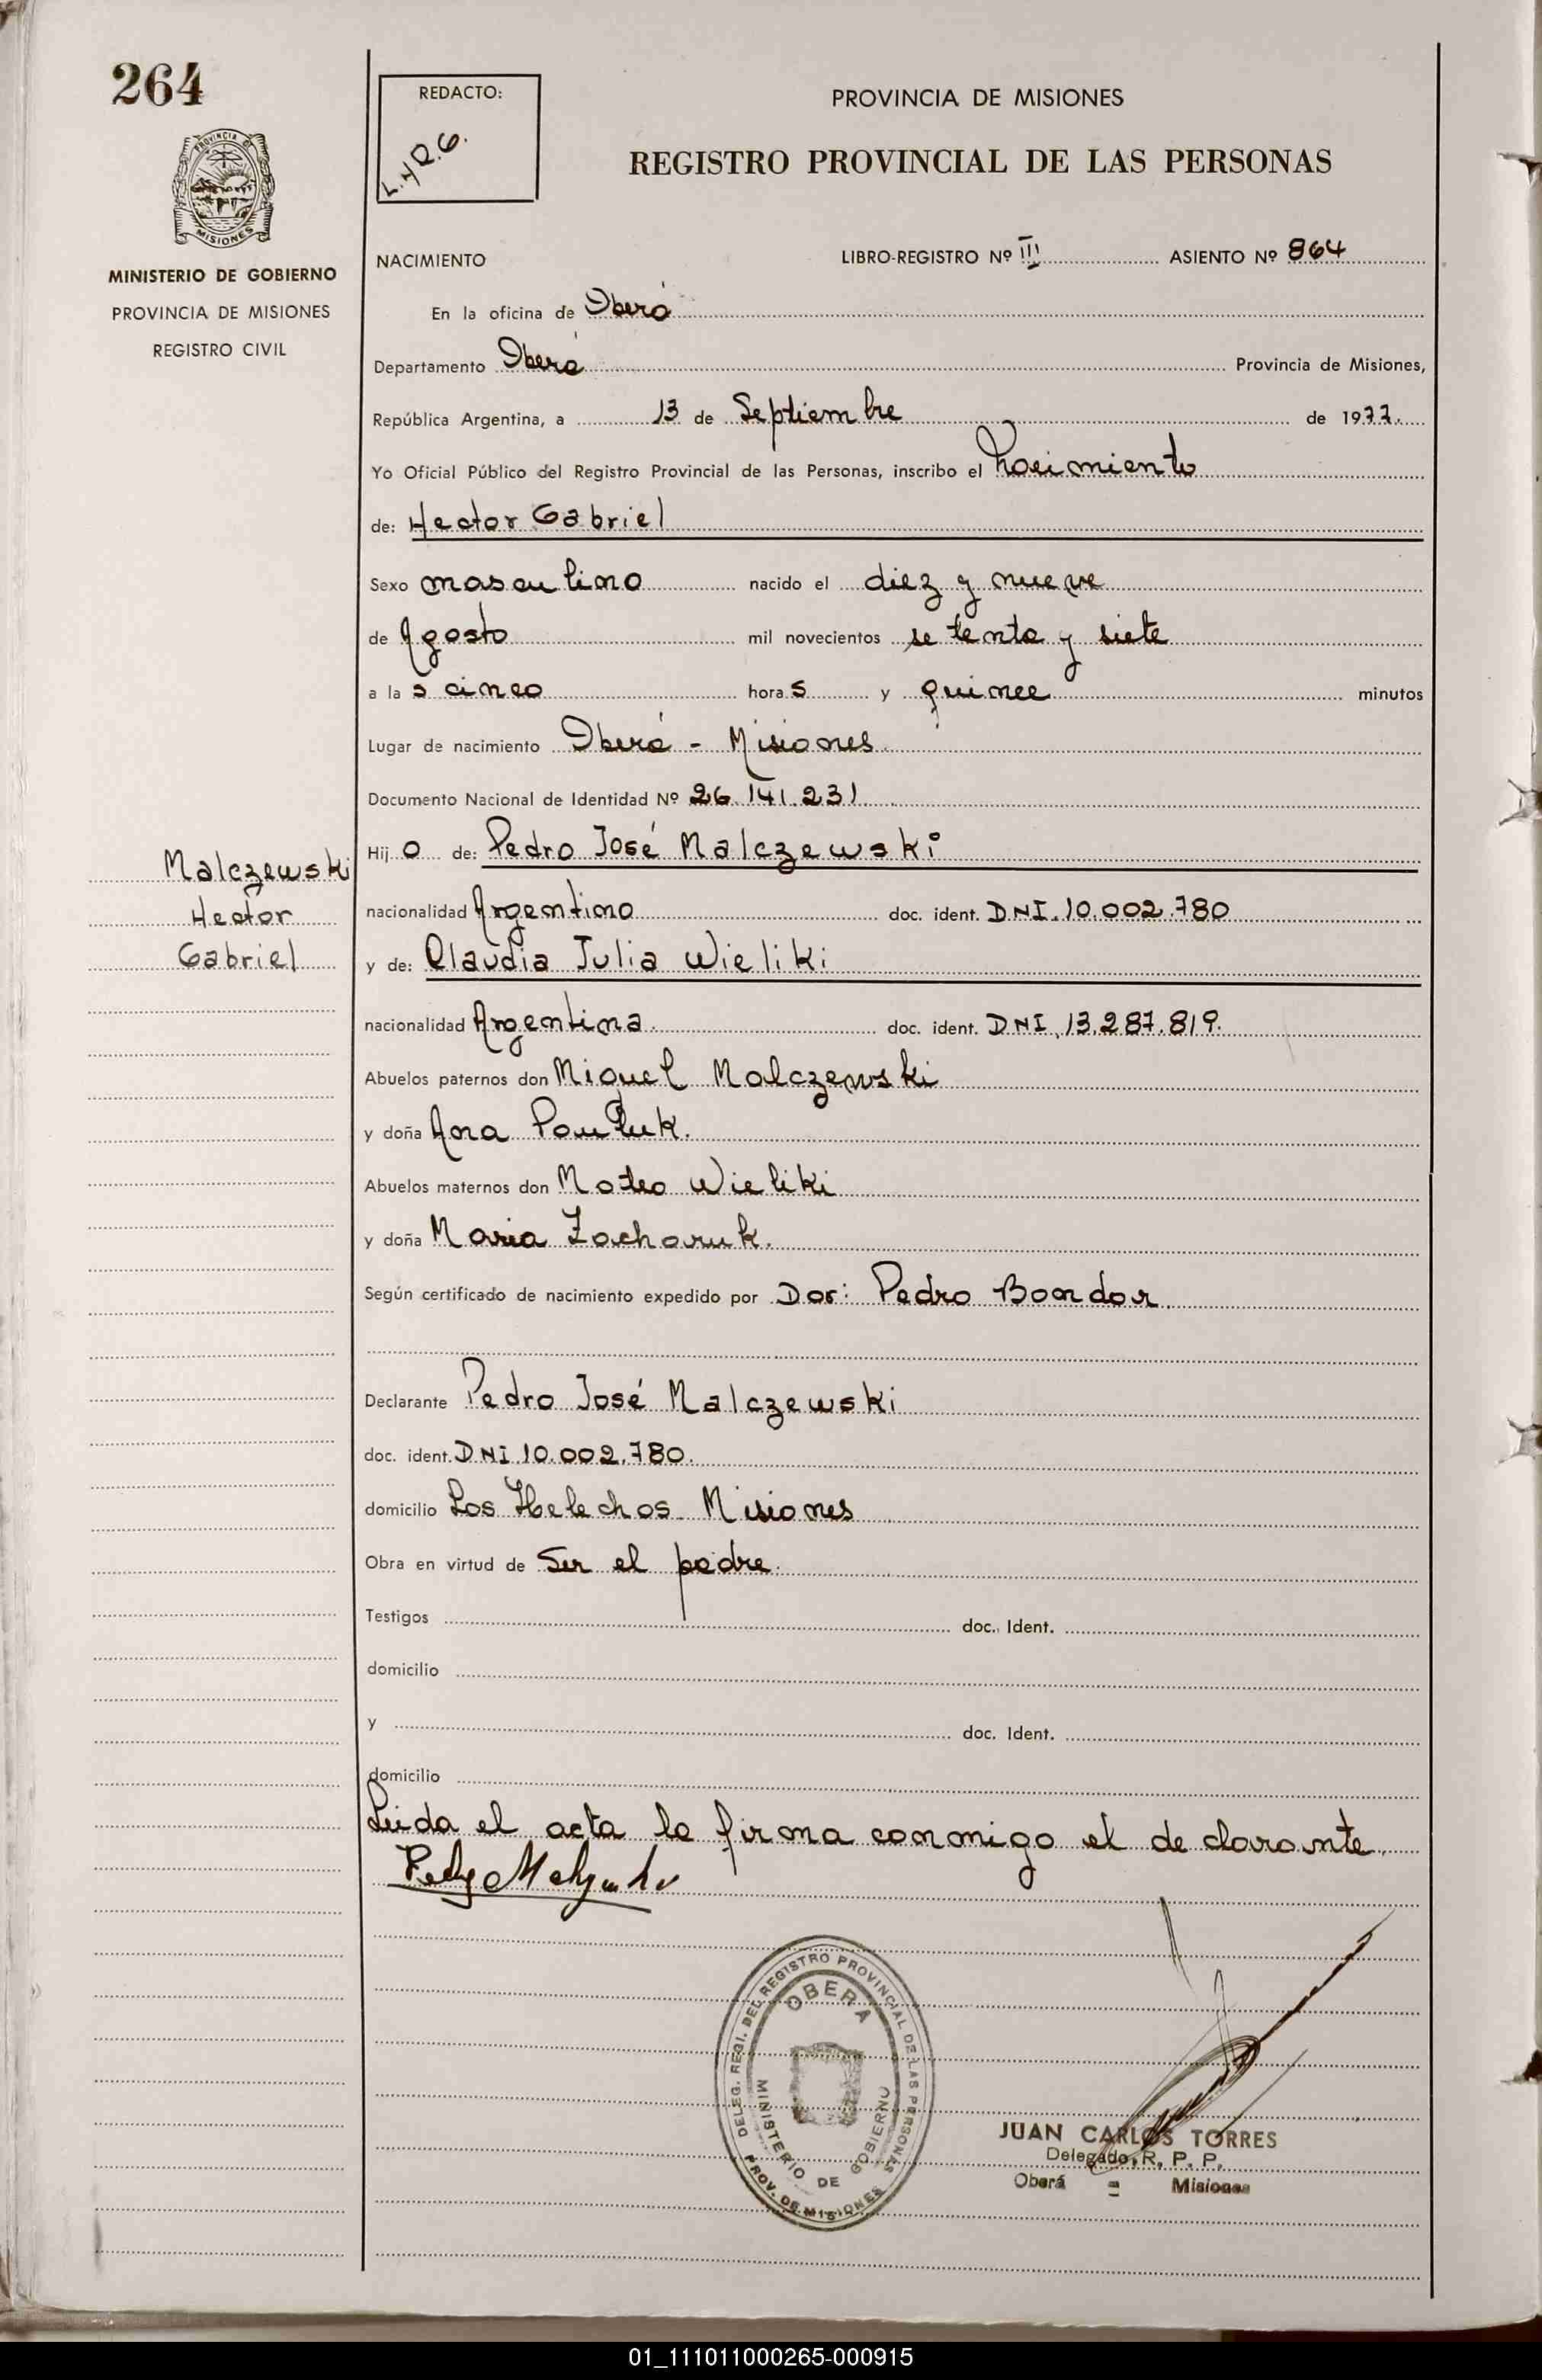 264
REDACTO:
L.H.R.G.
PROVINCIA DE MISIONES
REGISTRO PROVINCIAL DE LAS PERSONAS
PROVINCIA DE MISIONES
MINISTERIO DE GOBIERNO
PROVINCIA DE MISIONES
REGISTRO CIVIL
NACIMIENTO LIBRO-REGISTRO Nº III ASIENTO Nº 864
En la oficina de Oberá
Departamento Oberá Provincia de Misiones,
República Argentina, a 13 de Septiembre de 1977.
Yo Oficial Público del Registro Provincial de las Personas, inscribo el Nacimiento
de: Hector Gabriel
Sexo masculino nacido el diez y nueve
de Agosto mil novecientos setenta y siete
a las cinco horas y quince minutos
Lugar de nacimiento Oberá - Misiones
Documento Nacional de Identidad Nº 26.141.231
Malczewski
Hector
Gabriel
Hijo de: Pedro José Malczewski
nacionalidad Argentino doc. ident. DNI.10.002.780
y de: Claudia Julia Wieliki
nacionalidad Argentina doc. ident. DNI.13.287.819.
Abuelos paternos don Miguel Malczewski
y doña Ana Pauluk.
Abuelos maternos don Mateo Wieliki
y doña Maria Zacharuk.
Según certificado de nacimiento expedido por Dor: Pedro Bondar
Declarante Pedro José Malczewski
doc. ident. DNI.10.002.780.
domicilio Los Helechos Misiones
Obra en virtud de Ser el padre.
Testigos doc. Ident.
domicilio
y doc. Ident.
domicilio
Leida el acta la firma conmigo el declarante
DELEG. REGI. DEL REGISTRO PROVINCIAL DE LAS PERSONAS
OBERA
MINISTERIO DE GOBIERNO
PROV. DE MISIONES
JUAN CARLOS TORRES
Delegado, R. P. P.
Oberá = Misiones
01_111011000265-000915